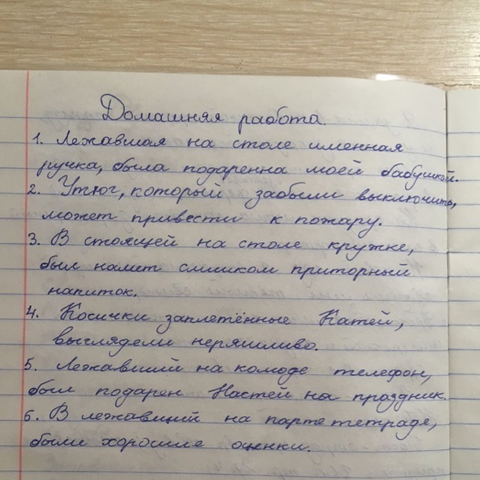 Домашняя работа.
1. Лежавшая на столе именная
ручка, была подаренна моей бабушкой.
2. Утюг, который забыли выключить,
может привести к пожару.
3. В стоящей на столе кружке,
был налит слишком приторный
напиток.
4. Косички заплетённые Катей,
выглядели неряшливо.
5. Лежавший на комоде телефон,
был подарен Настей на праздник.
6. В лежавшей на парте тетради,
были хорошие оценки.